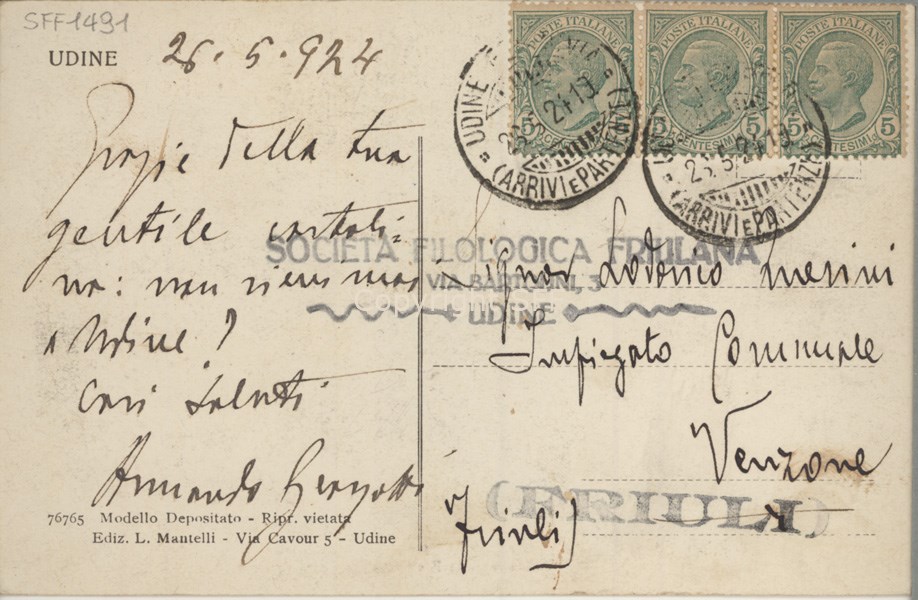 SFF1491
UDINE 26.5.924
POSTE ITALIANE POSTE ITALIANE POSTE ITALIANE
5 CENTESIMI 5 5 CENTESIMI 5 5 CENTESIMI 5
UDINE
(ARRIVI E PARTENZE)
(ARRIVI E PARTENZE)
Grazie della tua
gentile cartoli=
na: non vieni mai
a Udine?
Cari saluti
Armando
SOCIETÀ FILOLOGICA FRIULANA
VIA BARTOLINI, 3
UDINE
Signor Lodovico
Impiegato Comunale
Venzone
(Friuli)
(FRIULI)
76765 Modello Depositato - Ripr. vietata
Ediz. L. Mantelli - Via Cavour 5 - Udine